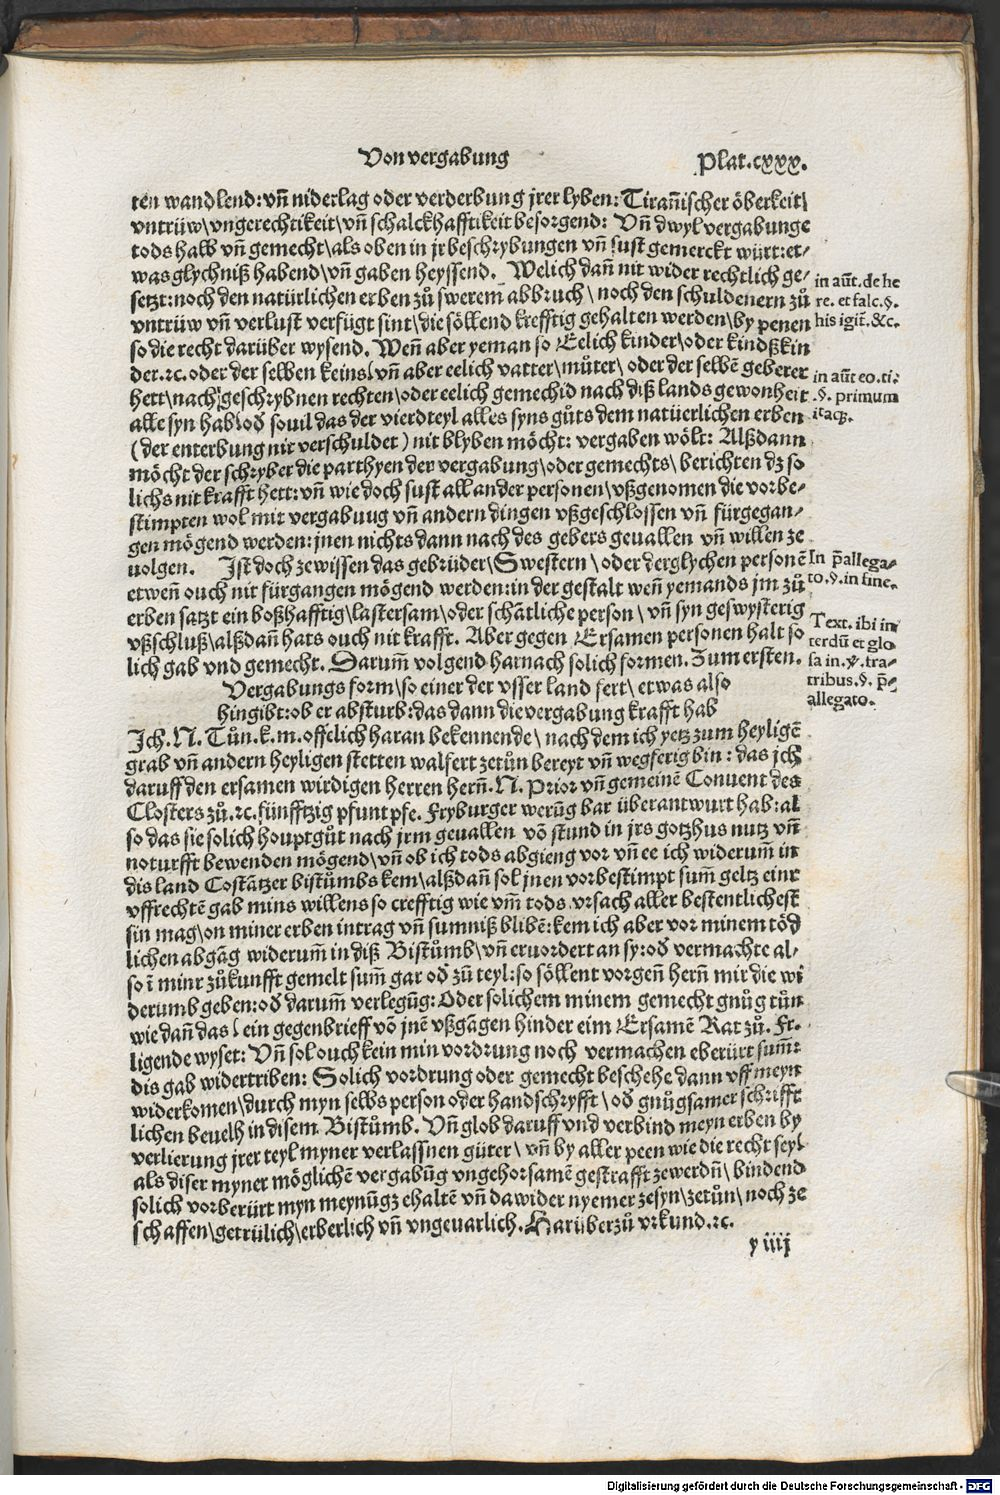 Von vergabung
Plat.cxxx.
ten wandlend: vñ niderlag oder verderbung jrer lyben: Tirañischer öberkeit\
vntrüw\vngerechtikeit\vñ schalckhafftikeit besorgend: Vñ dwyl vergabunge
tods halb vñ gemecht\als oben in jr beschrybungen vñ sust gemerckt würt: et⸗
was glychniß habend\vñ gaben heyssend. Welich dañ nit wider rechtlich ge⸗
setzt: noch den natürlichen erben zů swerem abbruch\noch den schuldenern zů
vntrüw vñ verlust verfügt sint\die söllend krefftig gehalten werden\by penen
so die recht darüber wysend. Weñ aber yeman so Eelich kinder\oder kindßkin
der.ꝛc. oder der selben keins\vñ aber eelich vatter\můter\oder der selbē geberer
hett\nach geschrybnen rechten\oder eelich gemechid nach diß lands gewonheit
alle syn hab\od̄ souil das der vierdteyl alles syns gůts dem natüerlichen erben
(der enterbung nit verschuldet) nit blyben möcht: vergaben wölt: Alßdann
möcht der schryber die parthyen der vergabung\oder gemechts\berichten dz so
lichs nit krafft hett: vñ wie doch sust all ander personen\vßgenomen die vorbe⸗
stimpten wol mit vergabuug vñ andern dingen vßgeschlossen vñ fürgegan⸗
gen mögend werden: jnen nichts dann nach des gebers geuallen vñ willen ze
uolgen. Ist doch zewissen das gebrüder\Swestern\oder derglychen personē
etweñ ouch nit fürgangen mögend werden: in der gestalt weñ yemands jm zů
erben satzt ein boßhafftig\lastersam\oder schātliche person\vñ syn geswysterig
vßschluß\alßdañ hats ouch nit krafft. Aber gegen Ersamen personen halt so
lich gab vnd gemecht. Darum̄ volgend harnach solich formen. Zum ersten.
Vergabungs form\so einer der vsser land fert\etwas also
hingibt: ob er absturb: das dann die vergabung krafft hab
Ich. N. Tůn.k.m. offelich haran bekennende\nach dem ich yetz zum heyligē
grab vñ andern heyligen stetten walfert zetůn bereyt vñ wegferig bin: das jch
daruff den ersamen wirdigen herren herñ. N. Prior vñ gemeinē Conuent des
Closters zů.ꝛc. fünfftzig pfunt pfe. Fryburger werūg bar überantwurt hab: al
so das sie solich houptgůt nach jrm geuallen vō stund in jrs gotzhus nutz vñ
noturfft bewenden mögend\vñ ob ich tods abgieng vor vñ ee ich widerum̄ in
dis land Costātzer bistůmbs kem\alßdañ sol jnen vorbestimpt sum̄ geltz einr
vffrechtē gab mins willens so crefftig wie vm̄ tods vrsach aller bestentlichest
sin mag\on miner erben intrag vñ sumniß blibē: kem ich aber vor minem töd
lichen abgāg widerum̄ in diß Bistůmb\vñ eruordert an sy: od̄ vermachte al⸗
so ī minr zůkunfft gemelt sum̄ gar od̄ zū teyl: so söllent vorgeñ herñ mir die wi
derumb geben: od̄ darum̄ verlegūg: Oder solichem minem gemecht gnůg tůn
wie dañ das\ein gegenbrieff vō jnē vßgāgen hinder eim Ersamē Rat zů. Fr.
ligende wyset: Vñ sol ouch kein min vordrung noch vermachen eberürt sum̄:
dis gab widertriben: Solich vordrung oder gemecht beschehe dann vff meyn
widerkomen\durch myn selbs person oder handschryfft\od̄ gnůgsamer schrifft
lichen beuelh in disem Bistůmb. Vñ glob daruff vnd verbind meyn erben by
verlierung jrer teyl myner verlassnen güter\vñ by aller peen wie die recht seyl
als diser myner möglichē vergabūg vngehorsamē gestrafft zewerdñ\bindend
solich vorberürt myn meynūgzehaltē vñ dawider nyemer zesyn\zetůn\noch ze
schaffen\getrülich\erberlich vñ vngeuarlich. Harüberzů vrkund.ꝛc.
y iiij
in aūt. de he
re. et falc. §.
his igit̄. &c.
in aūt eo. ti.
.§. primum
itaqꝫ.
In p̄allega⸗
to. §. in fine.
Text. ibi in
terdū et glo
sa in. ℣. tra⸗
tribus. §. p̄⸗
allegato.
Digitalisierung gefördert durch die Deutsche Forschungsgemeinschaft - DFG